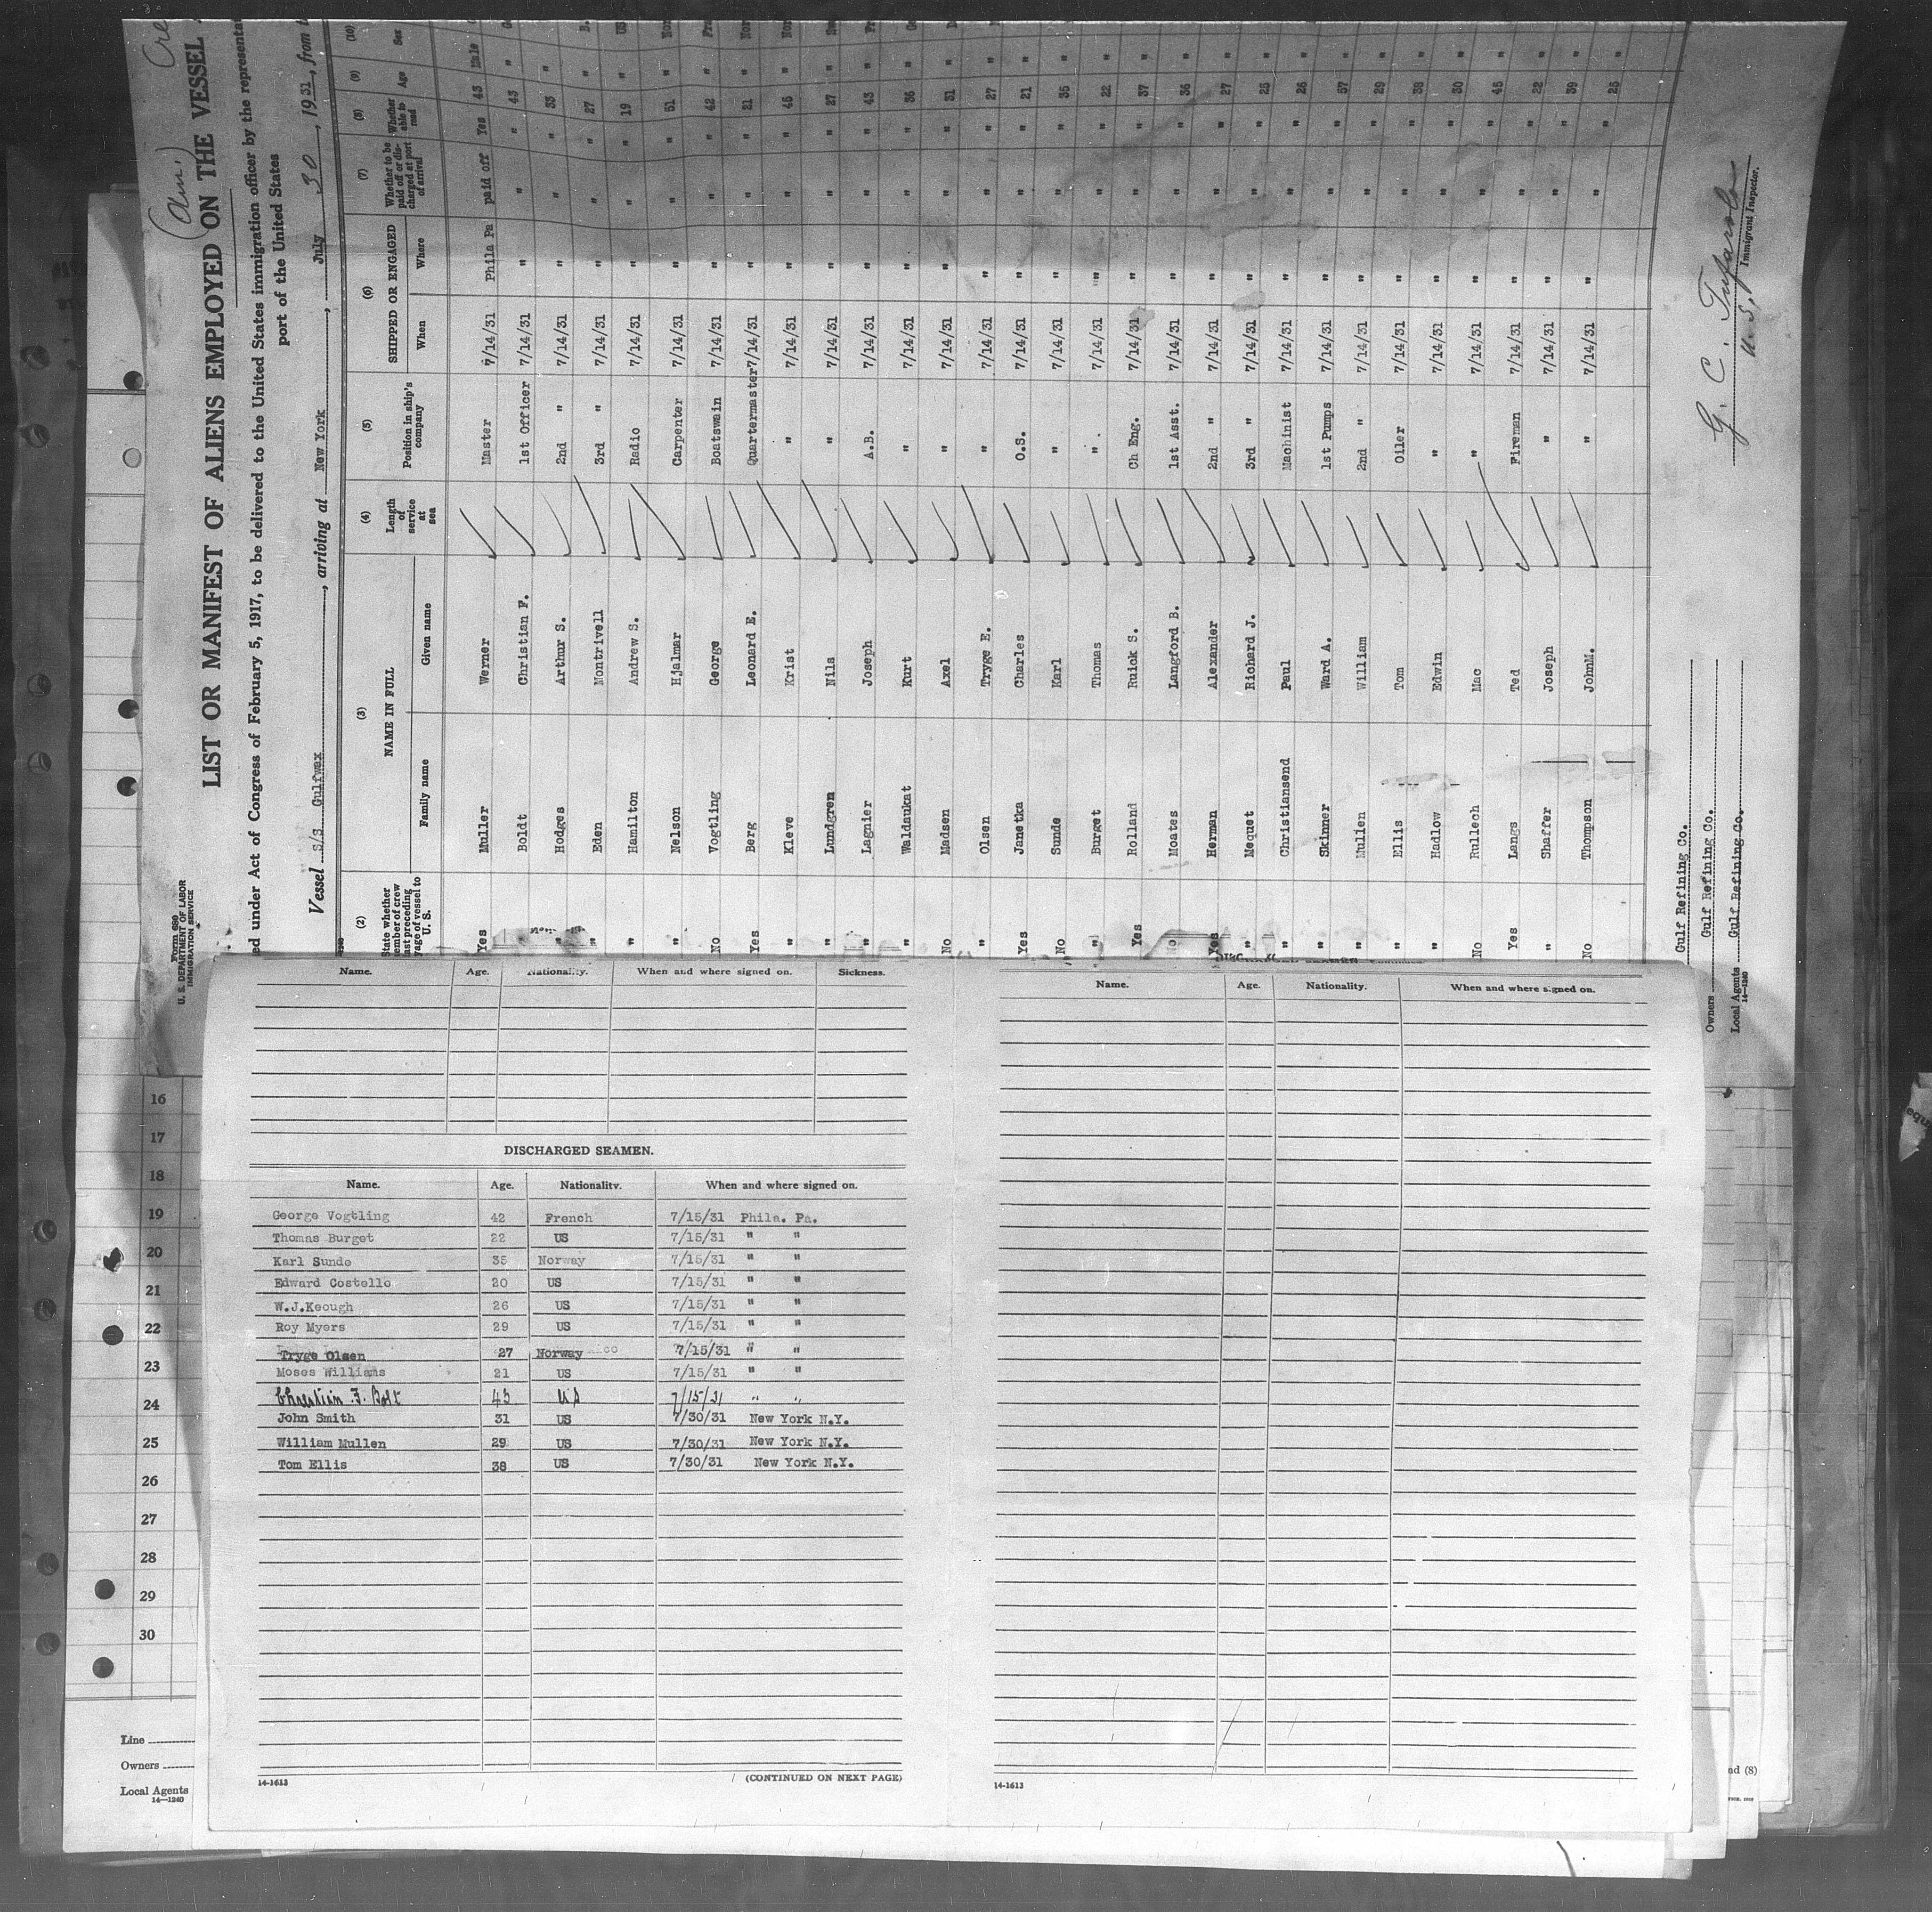 (Am.) Cre
LIST OR MANIFEST OF ALIENS EMPLOYED ON THE VESSEL
Form 680
U. S. DEPARTMENT OF LABOR
IMMIGRATION SERVICE
ed under Act of Congress of February 5, 1917, to be delivered to the United States immigration officer by the representa
port of the United States
Vessel S/S Gulfwax, arriving at New York, July 30, 1931, from t
(2) (3) (4) (5) (6) (7) (8) (9) (10)
State whether member of crew last preceding voyage of vessel to U. S.
NAME IN FULL
Family name Given name
Length of service at sea
Position in ship's company
SHIPPED OR ENGAGED
When Where
Whether to be paid off or discharged at port of arrival
Whether able to read
Age Sex
Yes Muller Werner Master 7/14/31 Phila Pa paid off Yes 43 Male
" Boldt Christian F. 1st Officer 7/14/31 " " " 43 "
" Hodges Arthur S. 2nd " 7/14/31 " " " 33 "
" Eden Montrivell 3rd " 7/14/31 " " " 27 "
" Hamilton Andrew S. Radio 7/14/31 " " " 19 "
" Nelson Hjalmar Carpenter 7/14/31 " " " 51 "
No Vogtling George Boatswain 7/14/31 " " " 42 "
Yes Berg Leonard E. Quartermaster 7/14/31 " " " 21 "
" Kleve Krist " 7/14/31 " " " 45 "
" Lundgren Nils " 7/14/31 " " " 27 "
" Lagnier Joseph A.B. 7/14/31 " " " 43 "
" Waldaukat Kurt " 7/14/31 " " " 36 "
No Madsen Axel " 7/14/31 " " " 31 "
" Olsen Tryge E. " 7/14/31 " " " 27 "
Yes Janetka Charles O.S. 7/14/31 " " " 21 "
No Sunde Karl " 7/14/31 " " " 35 "
" Burget Thomas " 7/14/31 " " " 22 "
Yes Rolland Ruick S. Ch Eng. 7/14/31 " " " 37 "
No Moates Langford B. 1st Asst. 7/14/31 " " " 36 "
Yes Herman Alexander 2nd " 7/14/31 " " " 27 "
" Mequet Richard J. 3rd " 7/14/31 " " " 25 "
" Christiansend Paul Machinist 7/14/31 " " " 26 "
" Skinner Ward A. 1st Pumps 7/14/31 " " " 57 "
" Mullen William 2nd " 7/14/31 " " " 29 "
" Ellis Tom Oiler 7/14/31 " " " 38 "
" Hadlow Edwin " 7/14/31 " " " 30 "
No Rullech Mac " 7/14/31 " " " 45 "
Yes Langs Ted Fireman 7/14/31 " " " 22 "
" Shaffer Joseph " 7/14/31 " " " 39 "
No Thompson JohnM. " 7/14/31 " " " 25 "
Gulf Refining Co.
Owners Gulf Refining Co.
Local Agents Gulf Refining Co.
14—1240
U. S. Immigrant Inspector.
Name. Age. Nationality. When and where signed on. Sickness.
DISCHARGED SEAMEN.
Name. Age. Nationality. When and where signed on.
George Vogtling 42 French 7/15/31 Phila. Pa.
Thomas Burget 22 US 7/15/31 " "
Karl Sunde 35 Norway 7/15/31 " "
Edward Costello 20 US 7/15/31 " "
W.J.Keough 26 US 7/15/31 " "
Roy Myers 29 US 7/15/31 " "
Tryge Olsen 27 Norway 7/15/31 " "
Moses Williams 21 US 7/15/31 " "
Christian F. Bolt 43 US 7/15/31 " "
John Smith 31 US 7/30/31 New York N.Y.
William Mullen 29 US 7/30/31 New York N.Y.
Tom Ellis 38 US 7/30/31 New York N.Y.
14-1613
(CONTINUED ON NEXT PAGE)
Name. Age. Nationality. When and where signed on.
14-1613
16
17
18
19
20
21
22
23
24
25
26
27
28
29
30
Line
Owners
Local Agents
14—1240
nd (8)